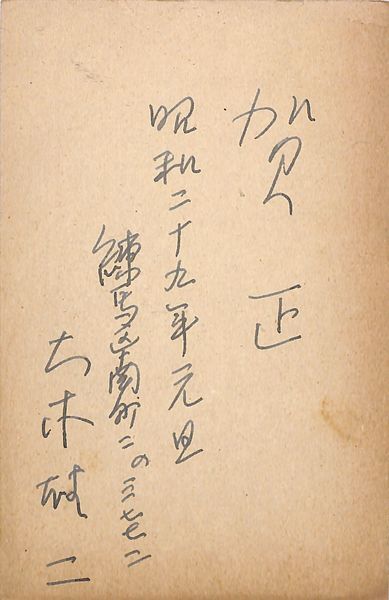 賀正
昭和二十九年元旦
練馬区南町二の三七七二
大木雄二